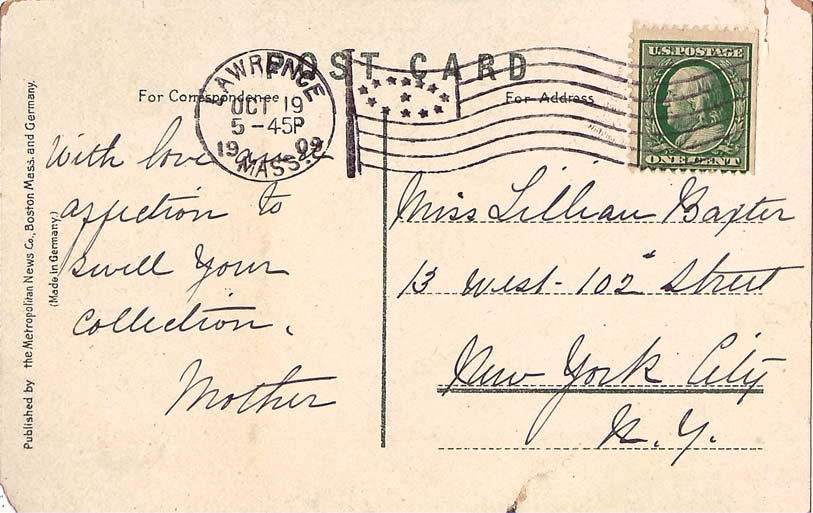 POST CARD
For Correspondence
For Address
LAWRENCE
OCT 19
5-45P
1909
MASS.
U.S. POSTAGE
ONE CENT
With love and
affection to
swell your
collection.
Mother
Miss Lillian Baxter
13 West-102d Street
New York City
N.Y.
Published by the Metropolitan News Co., Boston Mass. and Germany.
(Made in Germany.)